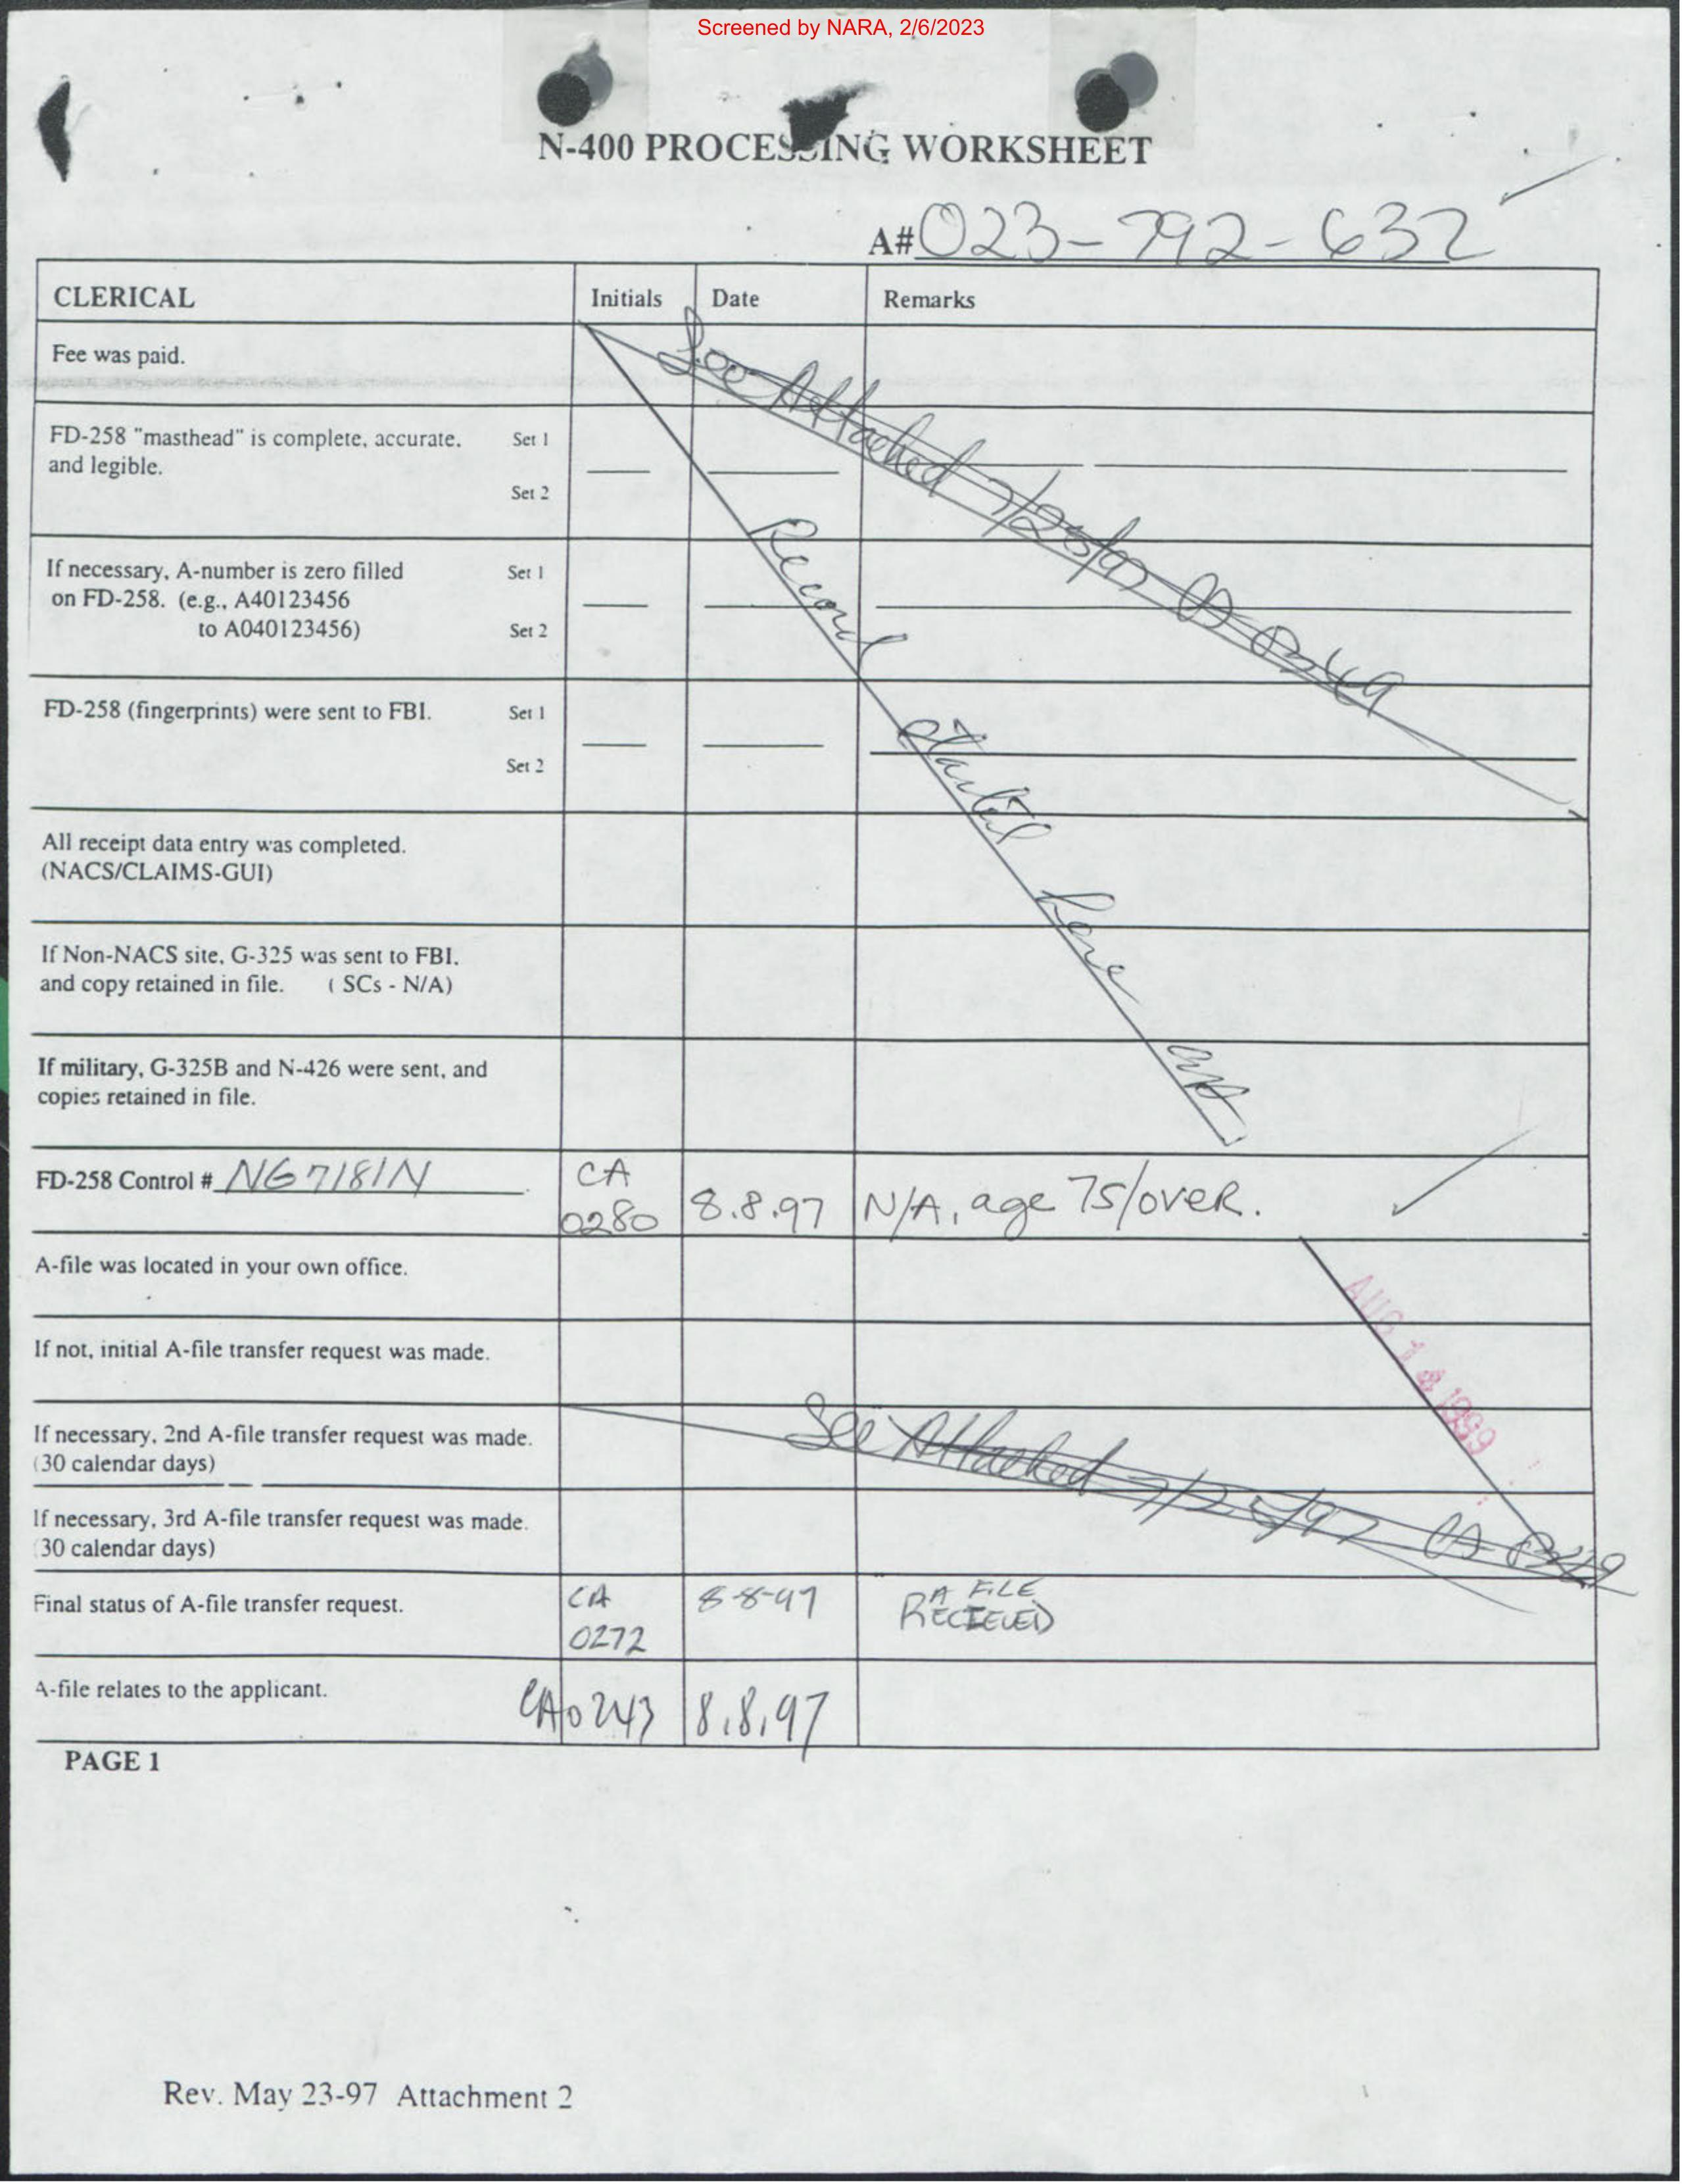 Screened by NARA, 2/6/2023
N-400 PROCESSING WORKSHEET
A# 023-792-632
CLERICAL Initials Date Remarks
Fee was paid.
See Attached 7/25/97 CA 0249
FD-258 "masthead" is complete, accurate, Set 1
and legible.
Set 2
If necessary, A-number is zero filled Set 1
on FD-258. (e.g., A40123456
to A040123456) Set 2
FD-258 (fingerprints) were sent to FBI. Set 1
Set 2
Record started here
All receipt data entry was completed.
(NACS/CLAIMS-GUI)
If Non-NACS site, G-325 was sent to FBI,
and copy retained in file. ( SCs - N/A)
If military, G-325B and N-426 were sent, and
copies retained in file.
FD-258 Control # NG7181N CA 0280 8.8.97 N/A, age 75/oveR.
A-file was located in your own office.
AUG 14 1999
If not, initial A-file transfer request was made.
If necessary, 2nd A-file transfer request was made.
(30 calendar days)
See Attached 7/25/97 CA 0249
If necessary, 3rd A-file transfer request was made.
30 calendar days)
Final status of A-file transfer request. CA 0272 8-8-97 A FILE RECIEVED
A-file relates to the applicant. CA0243 8.8.97
PAGE 1
Rev. May 23-97 Attachment 2